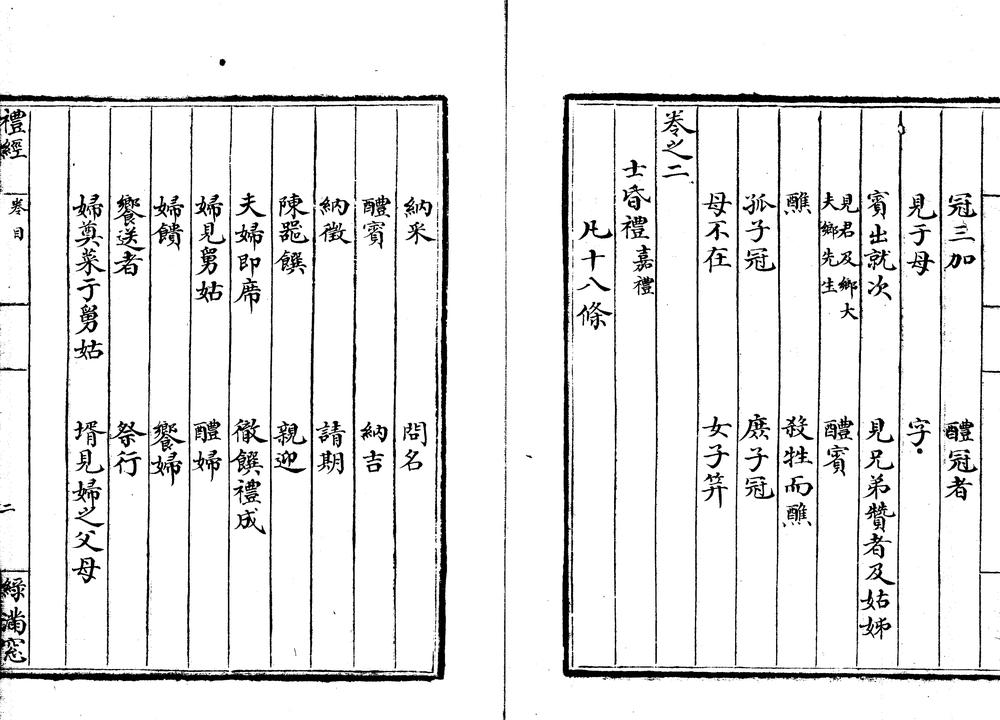 冠三加 醴冠者
見于母 字
賓出就次 見兄弟贊者及姑姊
見君及鄉大夫鄉先生 醴賓
醮 殺牲而醮
孤子冠 庶子冠
母不在 女子筓
卷之二
士昏禮 嘉禮
凡十八條
納采 問名
醴賓 納吉
納徵 請期
陳噐饌 親迎
夫婦即席 徹饌禮成
婦見舅姑 醴婦
婦饋 饗婦
饗送者 祭行
婦奠菜于舅姑 壻見婦之父母
禮經 卷目 二 綠滿窓